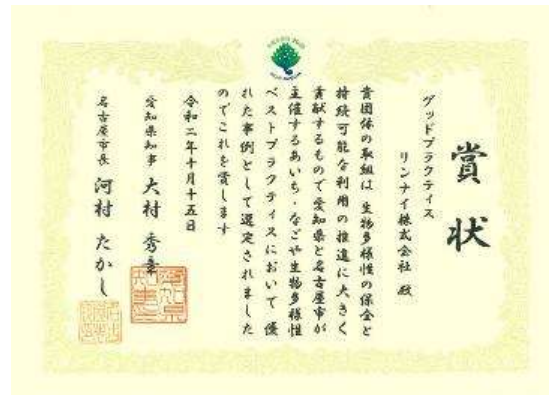 賞状
グッドプラクティス
リンナイ株式会社 殿
貴団体の取組は 生物多様性の保全と
持続可能な利用の推進に大きく
貢献するもので愛知県と名古屋市が
主催するあいち・なごや生物多様性
ベストプラクティスにおいて 優
れた事例として選定されました
のでこれを賞します
令和二年十月十五日
愛知県知事 大村 秀章
名古屋市長 河村 たかし